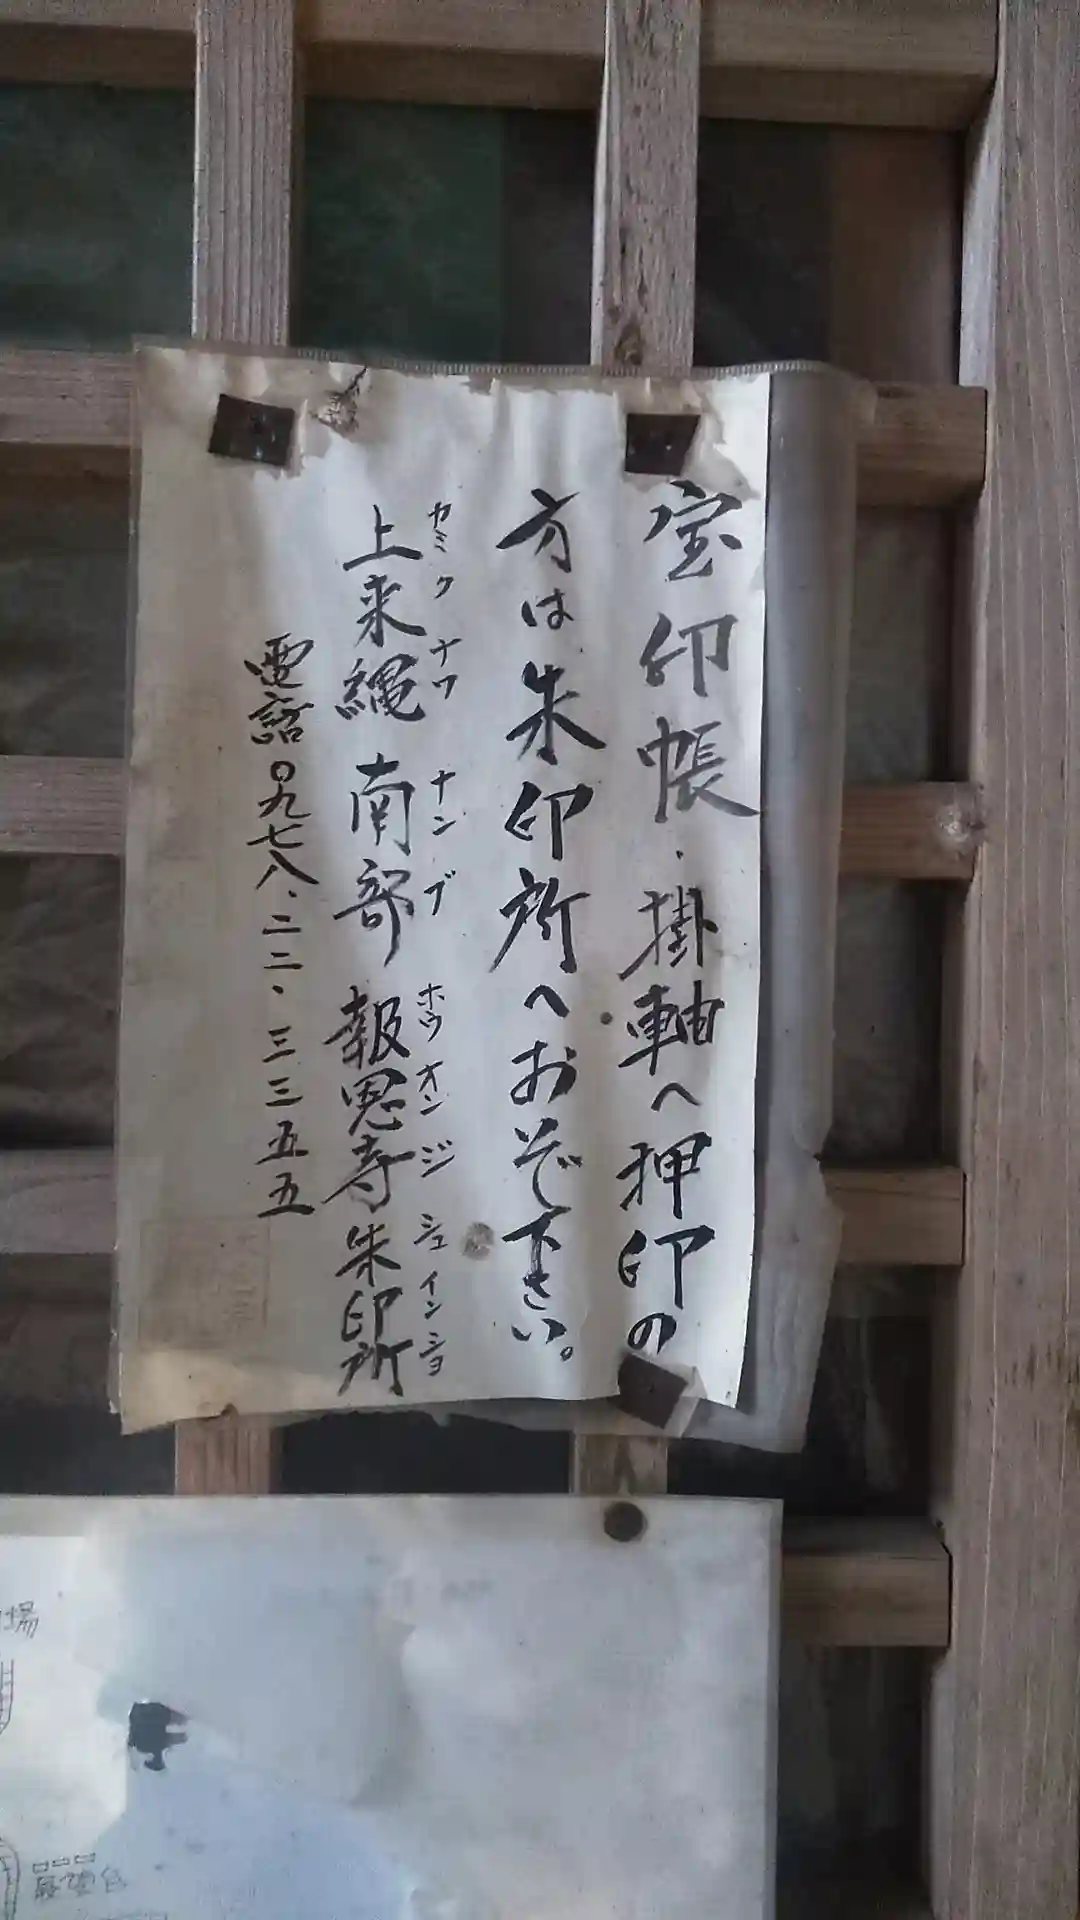 宝印帳・掛軸へ押印の
方は朱印所へおいで下さい。
カミ ク ナワ ナン ブ ホウ オン ジ シュ イン ショ
上来縄 南部 報恩寺 朱印所
電話〇九七八、二二、三三五五
場